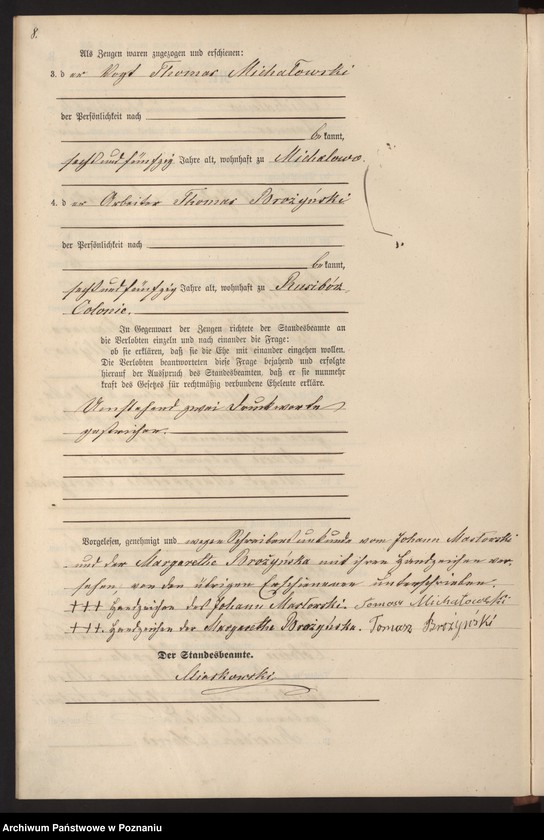 8.
Als Zeugen waren zugezogen und erschienen:
3. d er Vogt Thomas Michałowski
der Persönlichkeit nach
be kannt,
sechs und fünfzig Jahre alt, wohnhaft zu Michalowo.
4. d er Arbeiter Thomas Brożyński
der Persönlichkeit nach
be kannt,
sechs und fünfzig Jahre alt, wohnhaft zu
Colonie.
In Gegenwart der Zeugen richtete der Standesbeamte an
die Verlobten einzeln und nach einander die Frage:
ob sie erklären, daß sie die Ehe mit einander eingehen wollen.
Die Verlobten beantworteten diese Frage bejahend und erfolgte
hierauf der Ausspruch des Standesbeamten, daß er sie nunmehr
kraft des Gesetzes für rechtmäßig verbundene Eheleute erkläre.
Umstehend zwei Druckworte
gestrichen.
Vorgelesen, genehmigt und wegen Schreibensunkunde vom Johann Mastorski
und der Margarethe Brożyńska mit ihren Handzeichen ver-
sehen von den übrigen Erschienenen unterschrieben.
+++ Handzeichen des Johann Mastorski. Tomasz Michałowski
+++. Handzeichen der Margarethe Brożyńska. Tomasz Brożyński
Der Standesbeamte.
Mieskowski
Archiwum Państwowe w Poznaniu